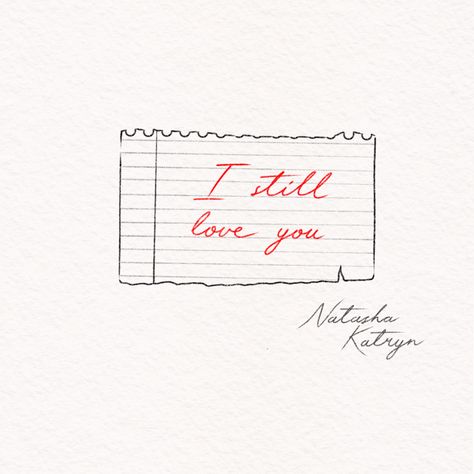 I still
love you
Natasha
Katryn